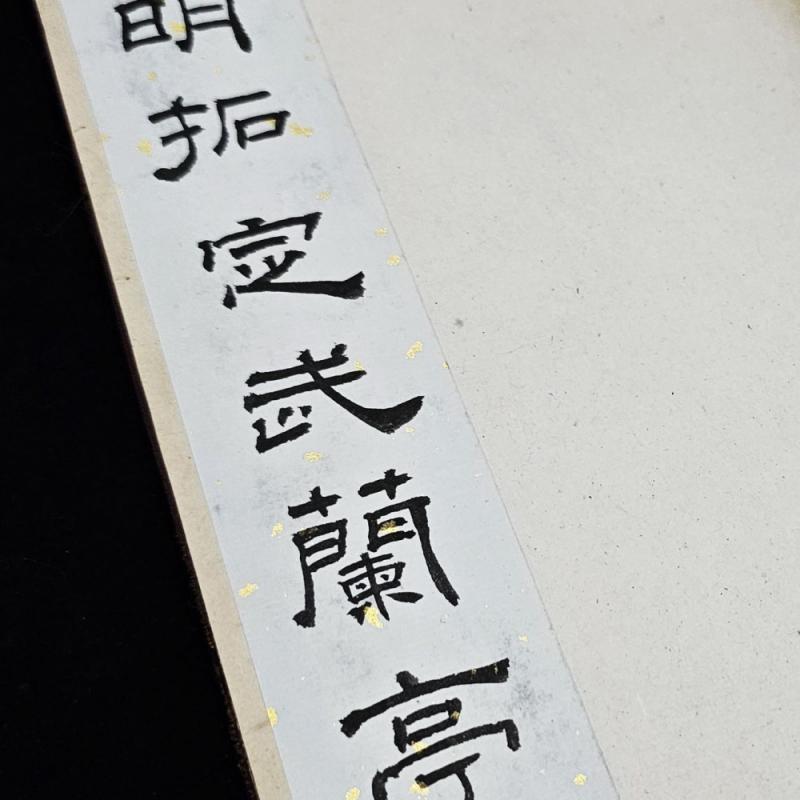 明拓定武蘭亭